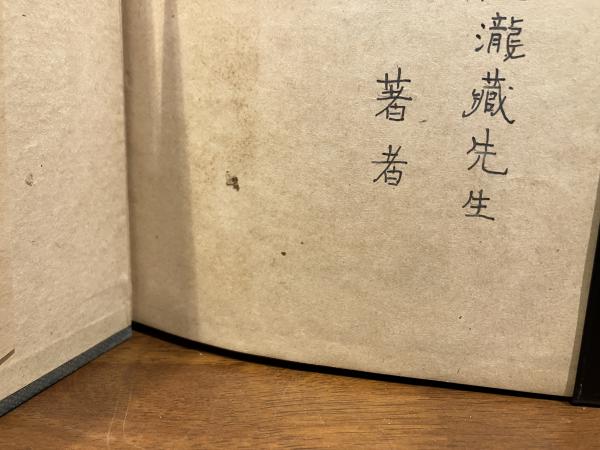 瀧藏先生
著者